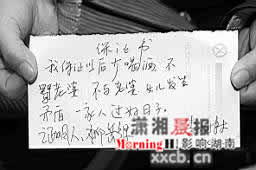 保证书
我保证以后少喝酒 不
骂老婆 不与老婆 女儿发生
矛盾 一家人过好日子。
证明人：
潇湘晨报
Morning H 影响湖南
xxcb.cn